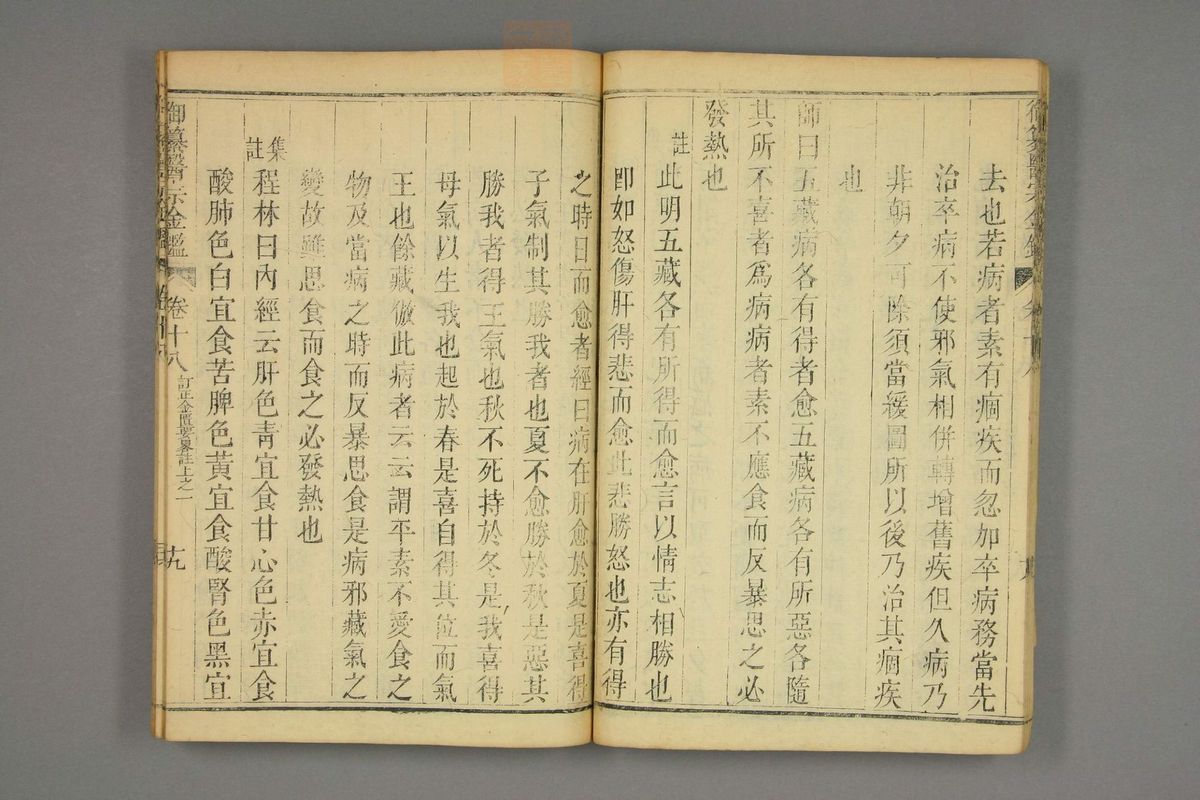 去也若病者素有痼疾而忽加卒病務當先
治卒病不使邪氣相併轉增舊疾但久病乃
非朝夕可除須當緩圖所以後乃治其痼疾
也
師曰五藏病各有得者愈五藏病各有所惡各隨
其所不喜者為病病者素不應食而反暴思之必
發熱也
註此明五藏各有所得而愈言以情志相勝也
即如怒傷肝得悲而愈此悲勝怒也亦有得
之時日而愈者經曰病在肝愈於夏是喜得
子氣制其勝我者也夏不愈勝於秋是惡其
勝我者得王氣也秋不死持於冬是我喜得
母氣以生我也起於春是喜自得其位而氣
王也餘藏倣此病者云云謂平素不愛食之
物及當病之時而反暴思食是病邪藏氣之
變故雖思食而食之必發熱也
集註程林曰內經云肝色靑宜食甘心色赤宜食
酸肺色白宜食苦脾色黃宜食酸腎色黑宜
御纂醫宗金鑑 卷十八 訂正金匱要畧註上之一 十九